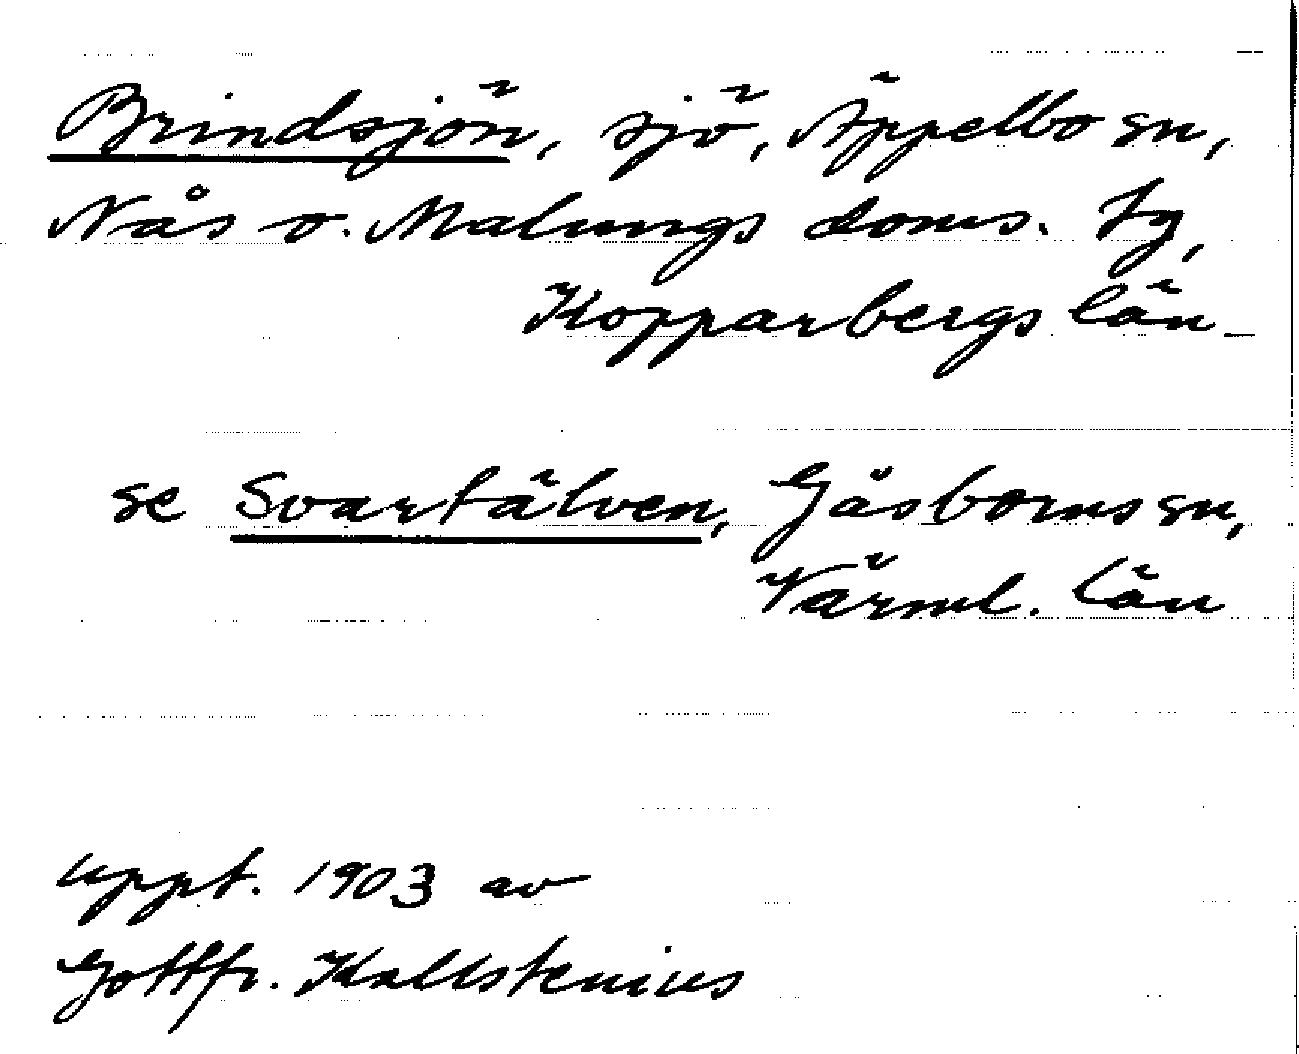 Brindsjön, sjö, Äppelbo sn,
Nås o. Malungs doms. tg,
Kopparbergs län
se Svartälven, Gåsborns sn,
Värml. län
uppt. 1903 av
Gottfr. Kallstenius